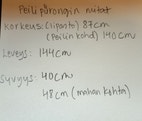 Peilipiirongin mitat
korkeus: (lipasto) 87cm
(Peilin kohd) 140cm
Leveys: 144cm
Syvyys: 40cm
48cm (mahan kohta)